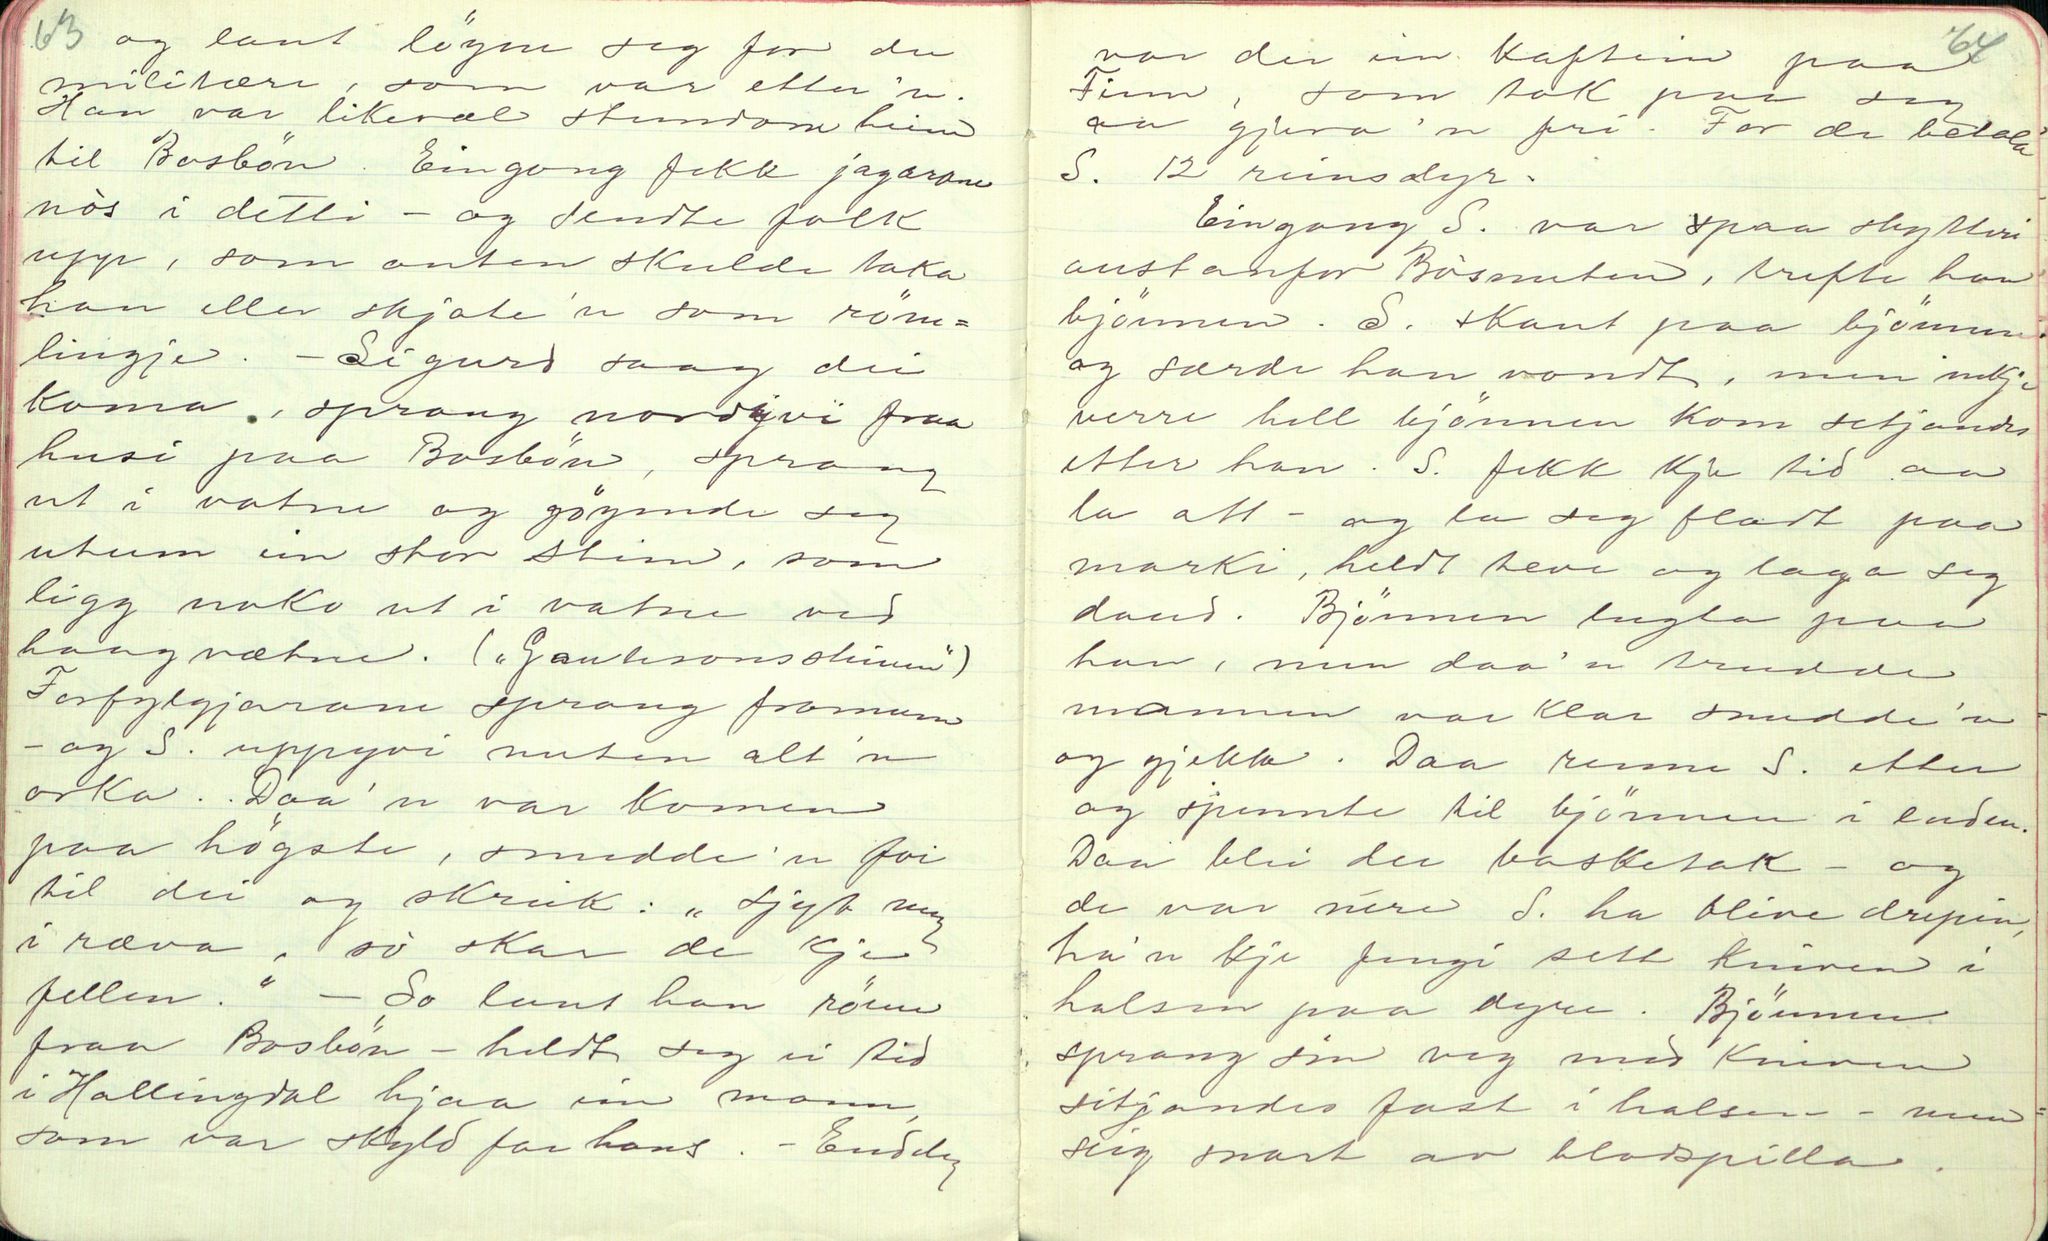 63
og laut löyne seg for dei
militære, som var etter'n.
Han var likevæl stundom heime
til Bosbön. Eingong fekk jagarane
nòs i detti - og sendte folk
upp, som anten skulde taka
han eller skjote'n som röm=
lingje. - Sigurd saag dei
koma, sprang nordyvi fraa
husi paa Bosbön, sprang
ut i vatne og göymde seg
utum ein stor stein, som
ligg noko ut i vatne ved
haagvætne. („Gautesonssteinen")
Forfylgjarane sprang framum
- og S. uppyvi nuten alt'n
orka. Daa'n var komen
paa högste, snudde'n foi
til dei og skreik: „Sjyt meg
i ræva, so skar de kje
fellen." - So laut han röme
fraa Bosbön - heldt seg ei tid
i Hallingdal hjaa ein mann,
som var skyld for hans. - Endeleg
64
var dei ein kaptein paa
Finn, som tok paa seg
aa gjera'n fri. For de betala
S. 12 reinsdyr.
Eingong S. var paa skytteri
austanfor Bösnuten, trefte han
bjönnen. S. skaut paa bjönnen
og særde han vondt, men inkje
verre hell bjönnen kom setjandes
etter han. S. fekk kje tid aa
la att - og la seg fladt paa
marki, heldt teve og laga seg
daud. Bjönnen lugta paa
han, men daa'n trudde
mannen var klar snudde'n
og gjekk. Daa renne S. etter
og spennte til bjönnen i enden.
Daa blei dei basketak - og
de var nére S. ha blive drepin,
ha'n kje fengi sett kniven i
halsen paa dyre. Bjönnen
sprang sin veg med kniven
sitjandes fast i halsen - men
seig snart av blodspilla.